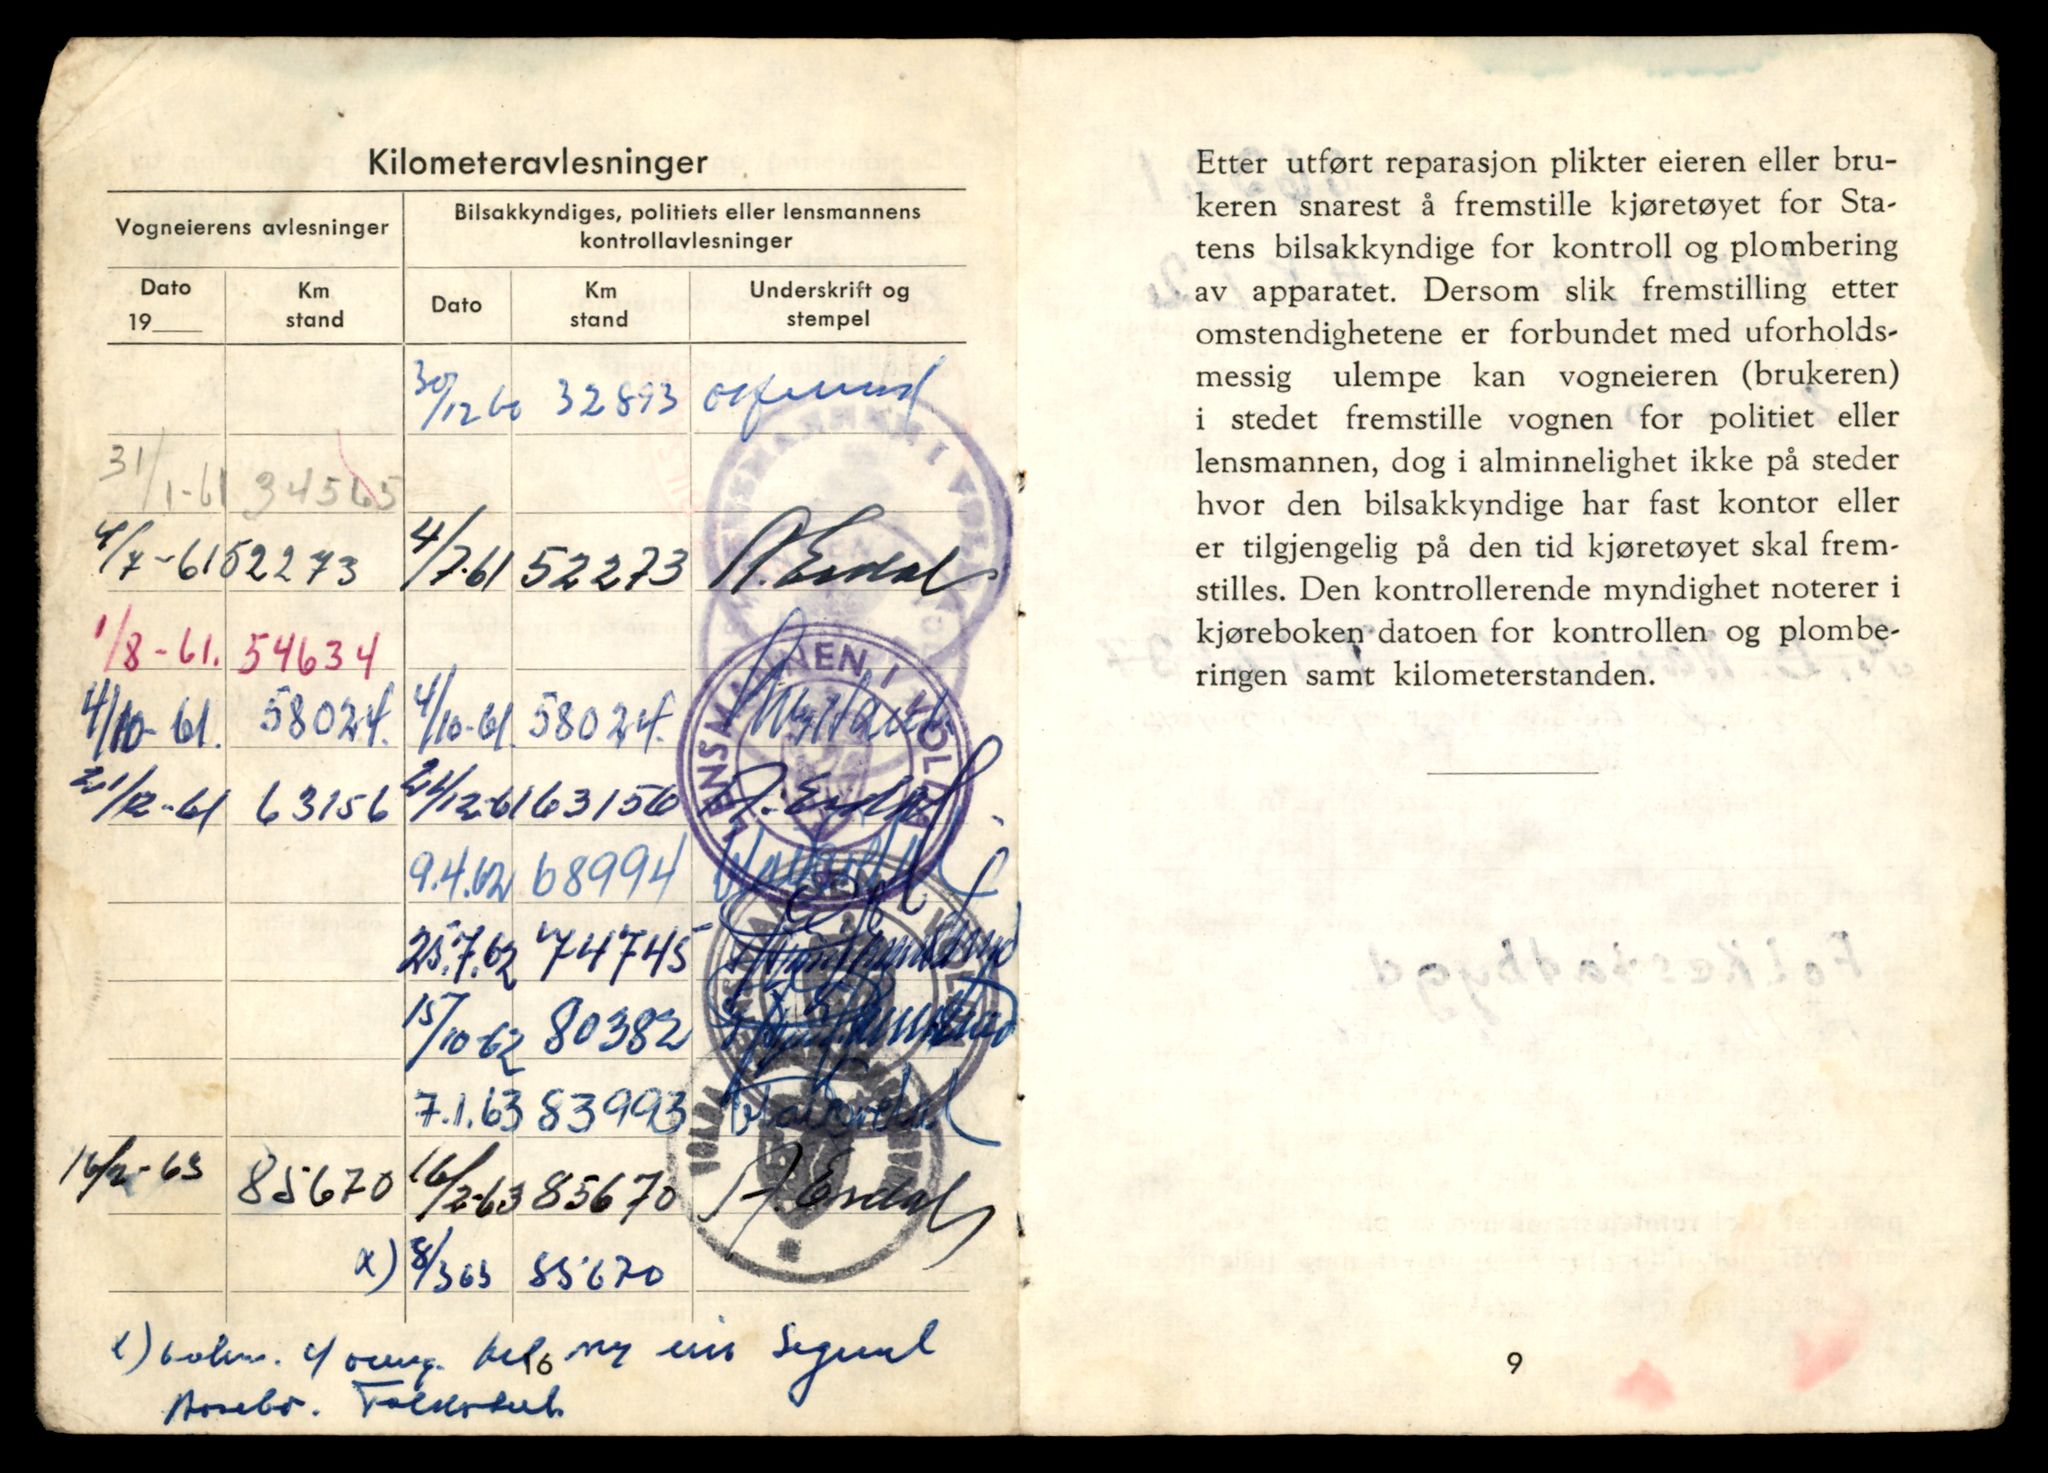 Kilometeravlesninger
Vogneierens avlesninger
Bilsakkyndiges, politiets eller lensmannens
kontrollavlesninger
Dato
19
Km
stand
Dato
Km
stand
Underskrift og
stempel
30/12 60 32893
31/1-61 34565
4/7-61 52273 4/7-61 52273 A. Eisdal
1/8-61. 54634
4/10-61. 58024. 4/10-61. 58024.
21/12-61 63156 21/12-61 63156 A. Eisdal
9.4.62 68994
25.7.62 74745
15/10-62 80382
7.1.63 83993
16/2-63 85670 16/2-63 85670 A. Eisdal
x) 8/3 63 85670
LENSMANNEN I VOLDA
x) ny eier Sigurd
Aasebø. Folkestad
16
Etter utført reparasjon plikter eieren eller bru-
keren snarest å fremstille kjøretøyet for Sta-
tens bilsakkyndige for kontroll og plombering
av apparatet. Dersom slik fremstilling etter
omstendighetene er forbundet med uforholds-
messig ulempe kan vogneieren (brukeren)
i stedet fremstille vognen for politiet eller
lensmannen, dog i alminnelighet ikke på steder
hvor den bilsakkyndige har fast kontor eller
er tilgjengelig på den tid kjøretøyet skal frem-
stilles. Den kontrollerende myndighet noterer i
kjøreboken datoen for kontrollen og plombe-
ringen samt kilometerstanden.
9